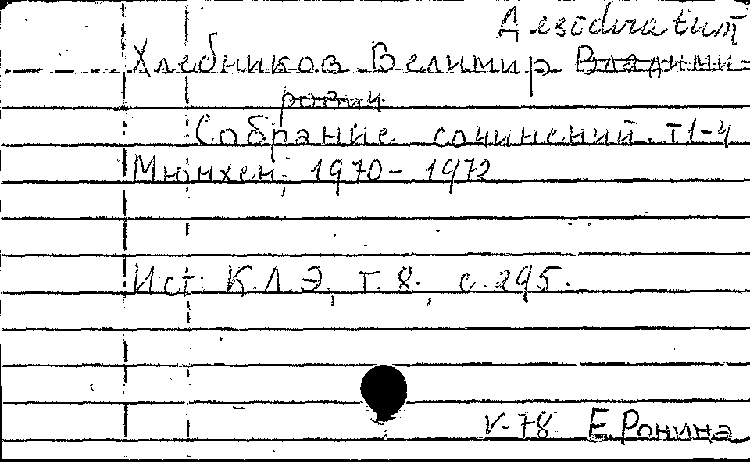 Desideratum
Хлебников Велимир Владими-
рович
Собрание сочинений. т1-4
Мюнхен, 1970- 1972
Ист. К.Л.Э., т. 8., с. 295.
V-78 Е.Ронина